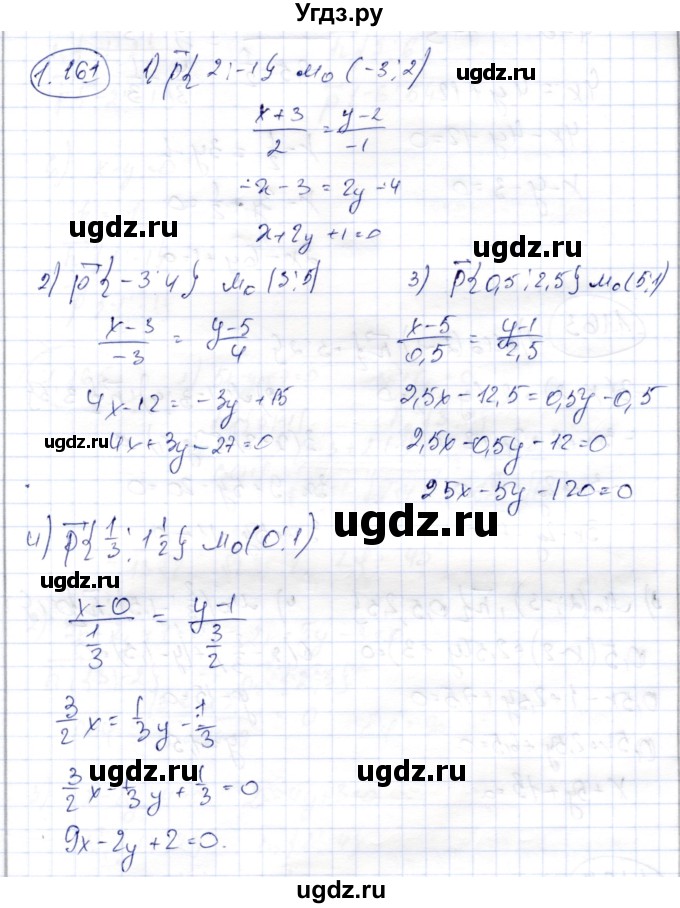 Угдз.ру
1.161 1) p⃗{2;-1} M₀(-3;2)
(x+3)/2 = (y-2)/-1
-x-3=2y-4
x+2y+1=0
ugdz.ru
ugdz.ru
2) p⃗{-3;4} M₀(3;5)
(x-3)/-3 = (y-5)/4
4x-12=-3y+15
4x+3y-27=0
ugdz.ru
3) p⃗{0,5;2,5} M₀(5;1)
(x-5)/0,5 = (y-1)/2,5
2,5x-12,5=0,5y-0,5
2,5x-0,5y-12=0
25x-5y-120=0
ugdz.ru
4) p⃗{1/3;1 1/2} M₀(0;1)
(x-0)/(1/3) = (y-1)/(3/2)
3/2x=1/3y-1/3
3/2x-1/3y+1/3=0
ugdz.ru
ugdz.ru
9x-2y+2=0.
ugdz.ru